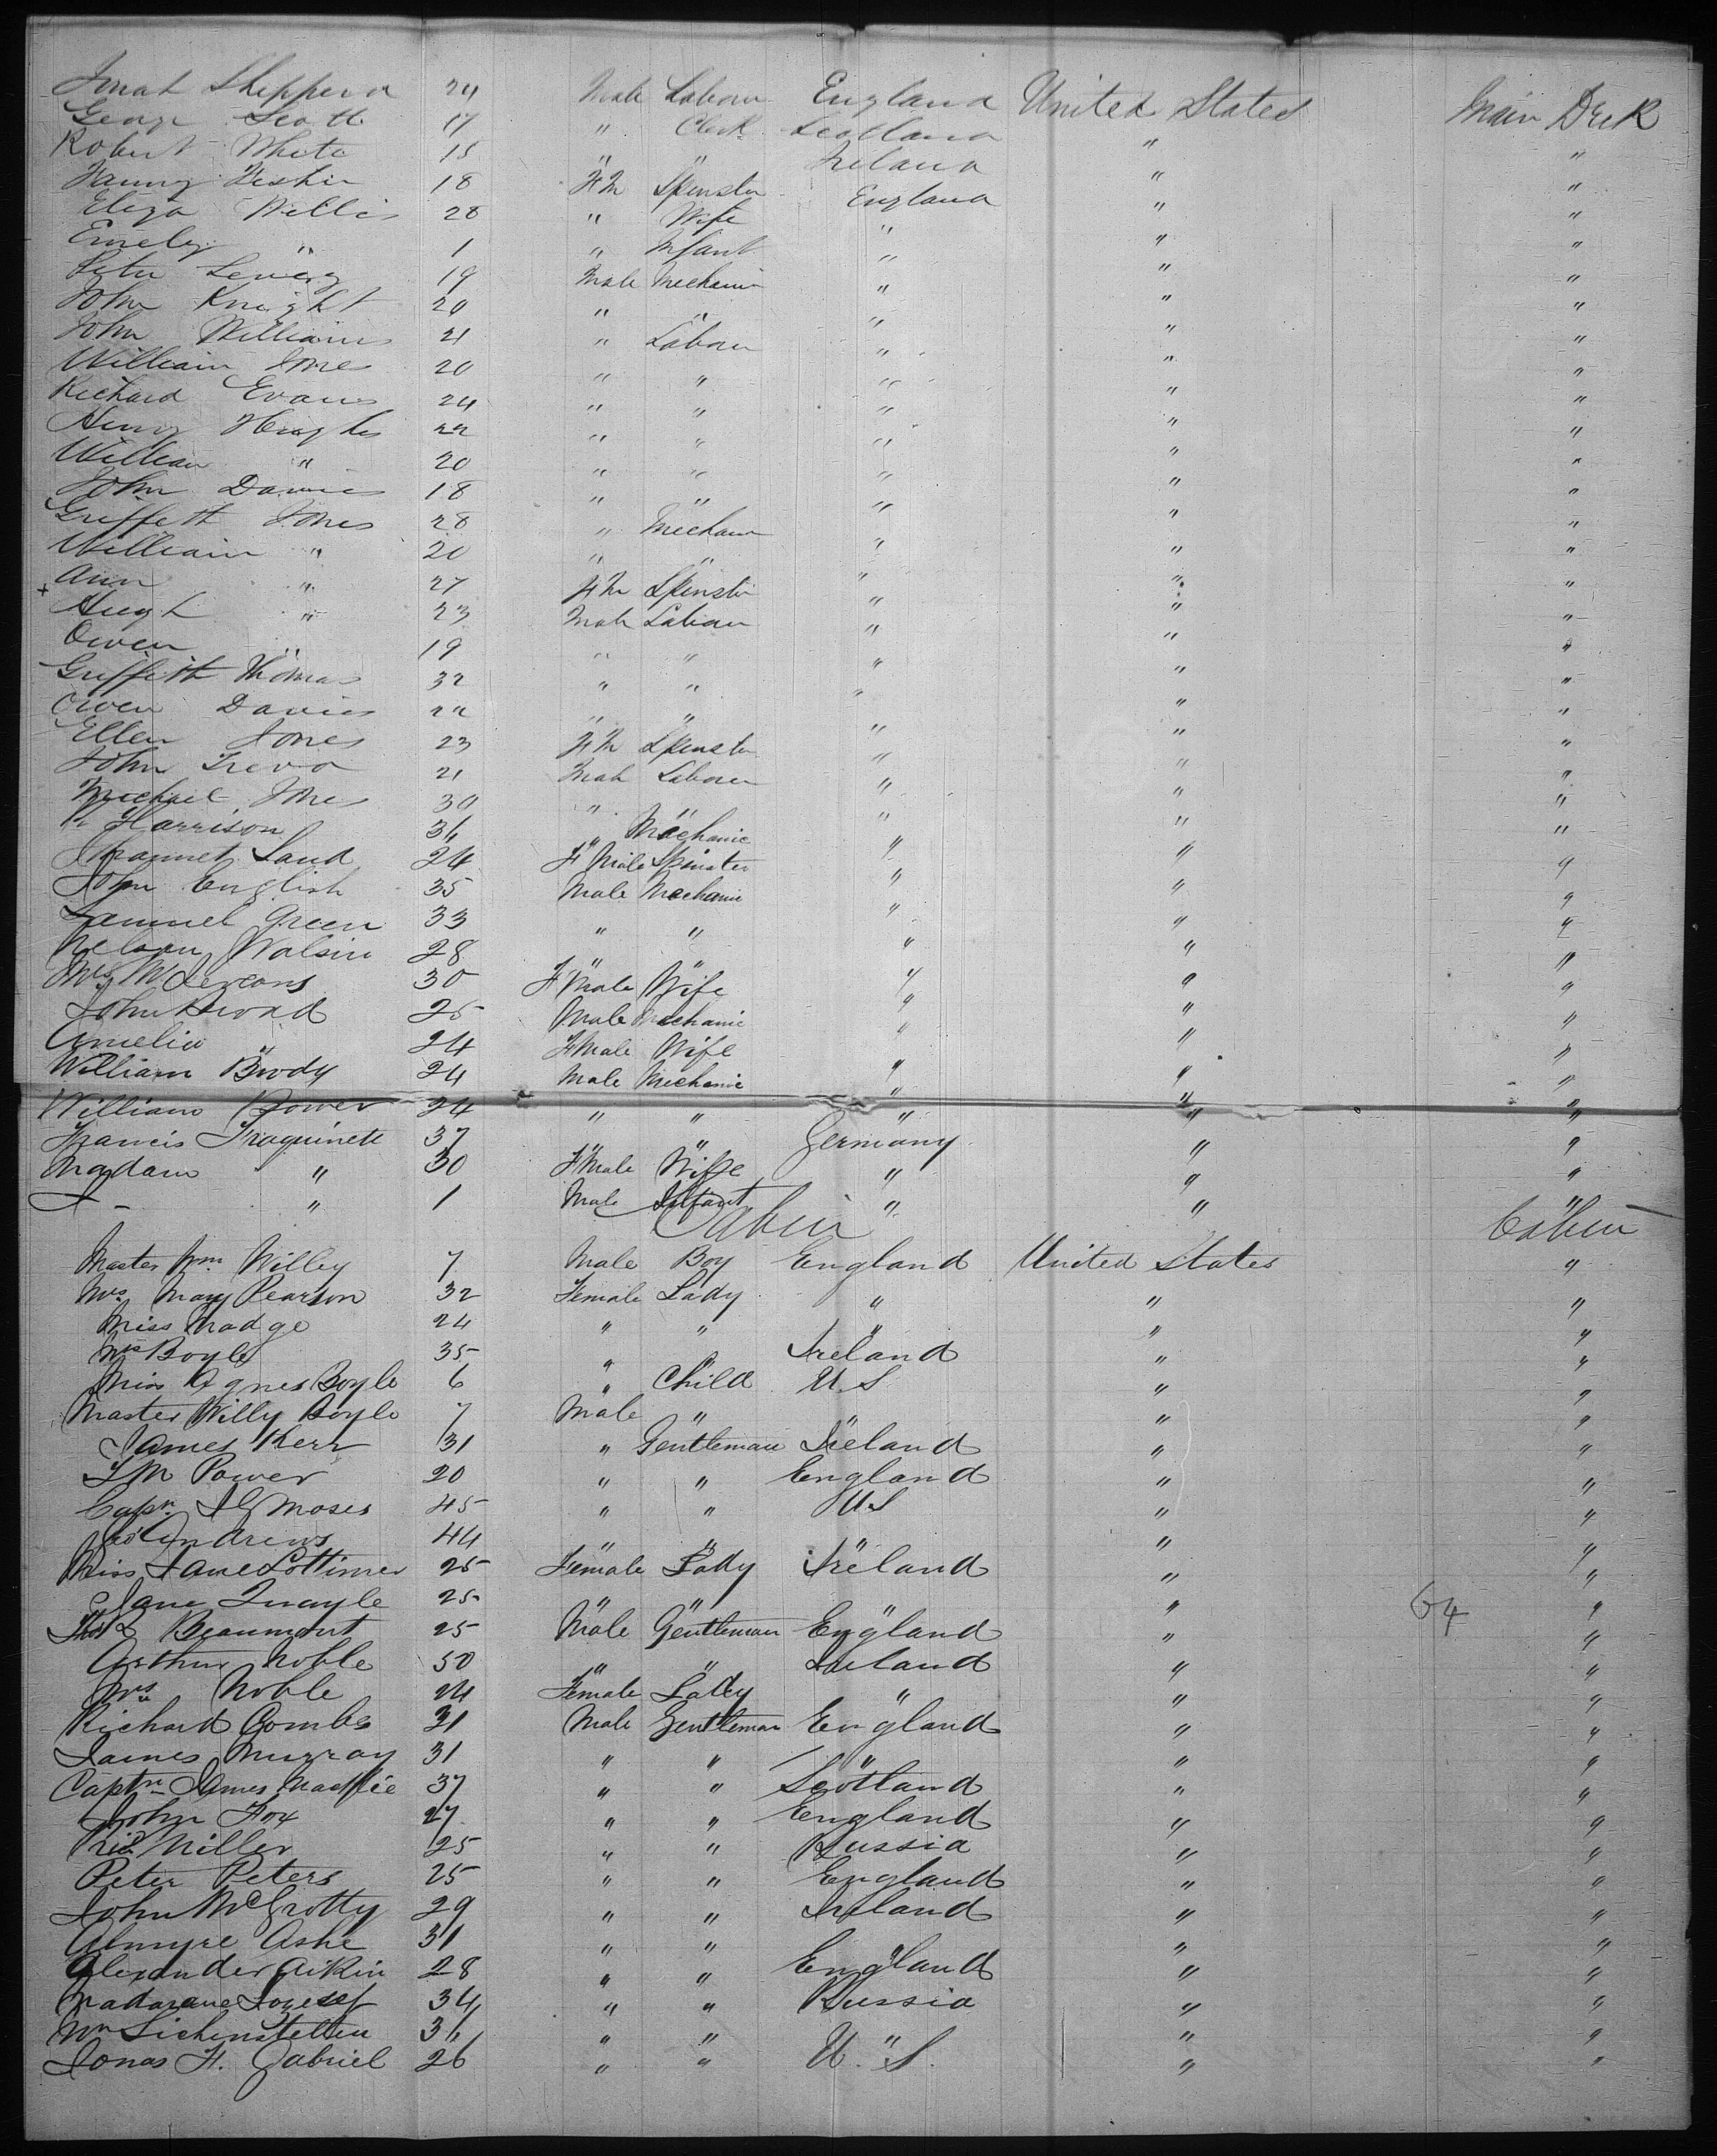 Jonah Shepperd 24 Male Labour England United States Main Deck
George Scott 17 " Clerk Scotland " "
Robert White 15 " " Ireland " "
Fanny Fisher 18 F M Spinster England " "
Eliza Willis 28 " Wife " " "
Emely " 1 " Infant " " "
Peter 19 Male Mechanic " " "
John Knight 20 " " " " "
John Williams 21 " Labour " " "
William Jones 20 " " " " "
Richard Evans 24 " " " " "
Henry Hughes 22 " " " " "
William " 20 " " " " "
John Davies 18 " " " " "
Griffeth Jones 28 " Mechanic " " "
William " 20 " " " " "
+ Ann " 27 F M Spinster " " "
Hugh " 23 Male Labour " " "
Owen " 19 " " " " "
Griffeth Thomas 32 " " " " "
Owen Davies 22 " " " " "
Ellen Jones 23 F M Spinster " " "
John Trevor 21 Male Labour " " "
Michael Jones 30 " " " " "
Harrison 36 " Mechanic " " "
Jeannet Laud 24 F Male Spinster " " "
John English 35 Male Mechanic " " "
Samuel Green 33 " " " " "
Nelson 28 " " " " "
Mrs 30 F Male Wife " " "
John 25 Male Mechanic " " "
Amelia " 24 F Male Wife " " "
William Brody 24 Male Mechanic " " "
William Bower 24 " " " " "
Francis Troquinete 37 " " Germany " "
Madam " 30 F Male Wife " " "
J - " 1 Male Infant " " "
Cabin Cabin
Master Wm Willey 7 Male Boy England United States "
Mrs Mary Pearson 32 Female Lady " " "
Miss Madge 24 " " " " "
Mrs Boyle 35 " " Ireland " "
Miss Agnes Boyle 6 " Child U.S " "
Master Willy Boyle 7 Male " " " "
James Kerr 31 " Gentleman Ireland " "
J M Power 20 " " England " "
Capn. J G Moses 45 " " U.S " "
Andrews 44 " " " " "
Miss Jane Lottimer 25 Female Lady Ireland " "
Jane Quayle 25 " " " " 64 "
Thos R Beaumont 25 Male Gentleman England " "
Arthur Noble 50 " " Ireland " "
Mrs Noble 24 Female Lady " " "
Richard Combs 31 Male Gentleman England " "
James Murray 31 " " " " "
Captn James Macfie 37 " " Scotland " "
John Fox 27 " " England " "
Miller 25 " " Russia " "
Peter Peters 25 " " England " "
John McGrotty 29 " " Ireland " "
Almyre Ashe 31 " " " " "
Alexander Aikin 28 " " England " "
34 " " Russia " "
Wm Lichenstellen 36 " " " " "
Jonas H. Gabriel 26 " " U.S. " "